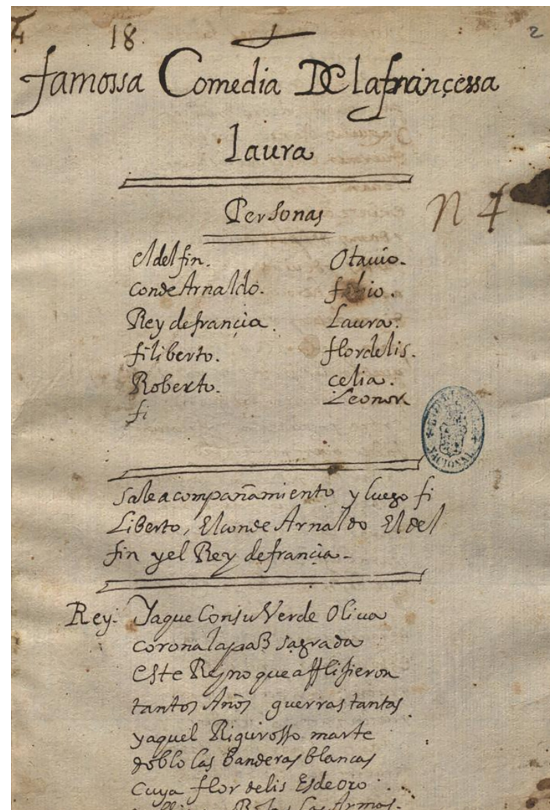 18. 2
famossa Comedia De lafrancessa
laura
Personas
N 4
el delfin. Otauio.
conde Arnaldo. fabio.
Rey de francia. Laura.
filiberto. flordelis.
Roberto. celia.
fi Leonor
BIBLIOTECA NACIONAL
sale acompañamiento y luego fi
Liberto, El conde Arnaldo El del
fin y el Rey de francia.
Rey. Ya que Con su Verde Oliua
corona la paz sagrada
este Reyno que afflijieron
tantos Años guerras tantas
y a quel Riguroso marte
doblo las banderas blancas
cuya flor de lis Es de oro
Las Armas.